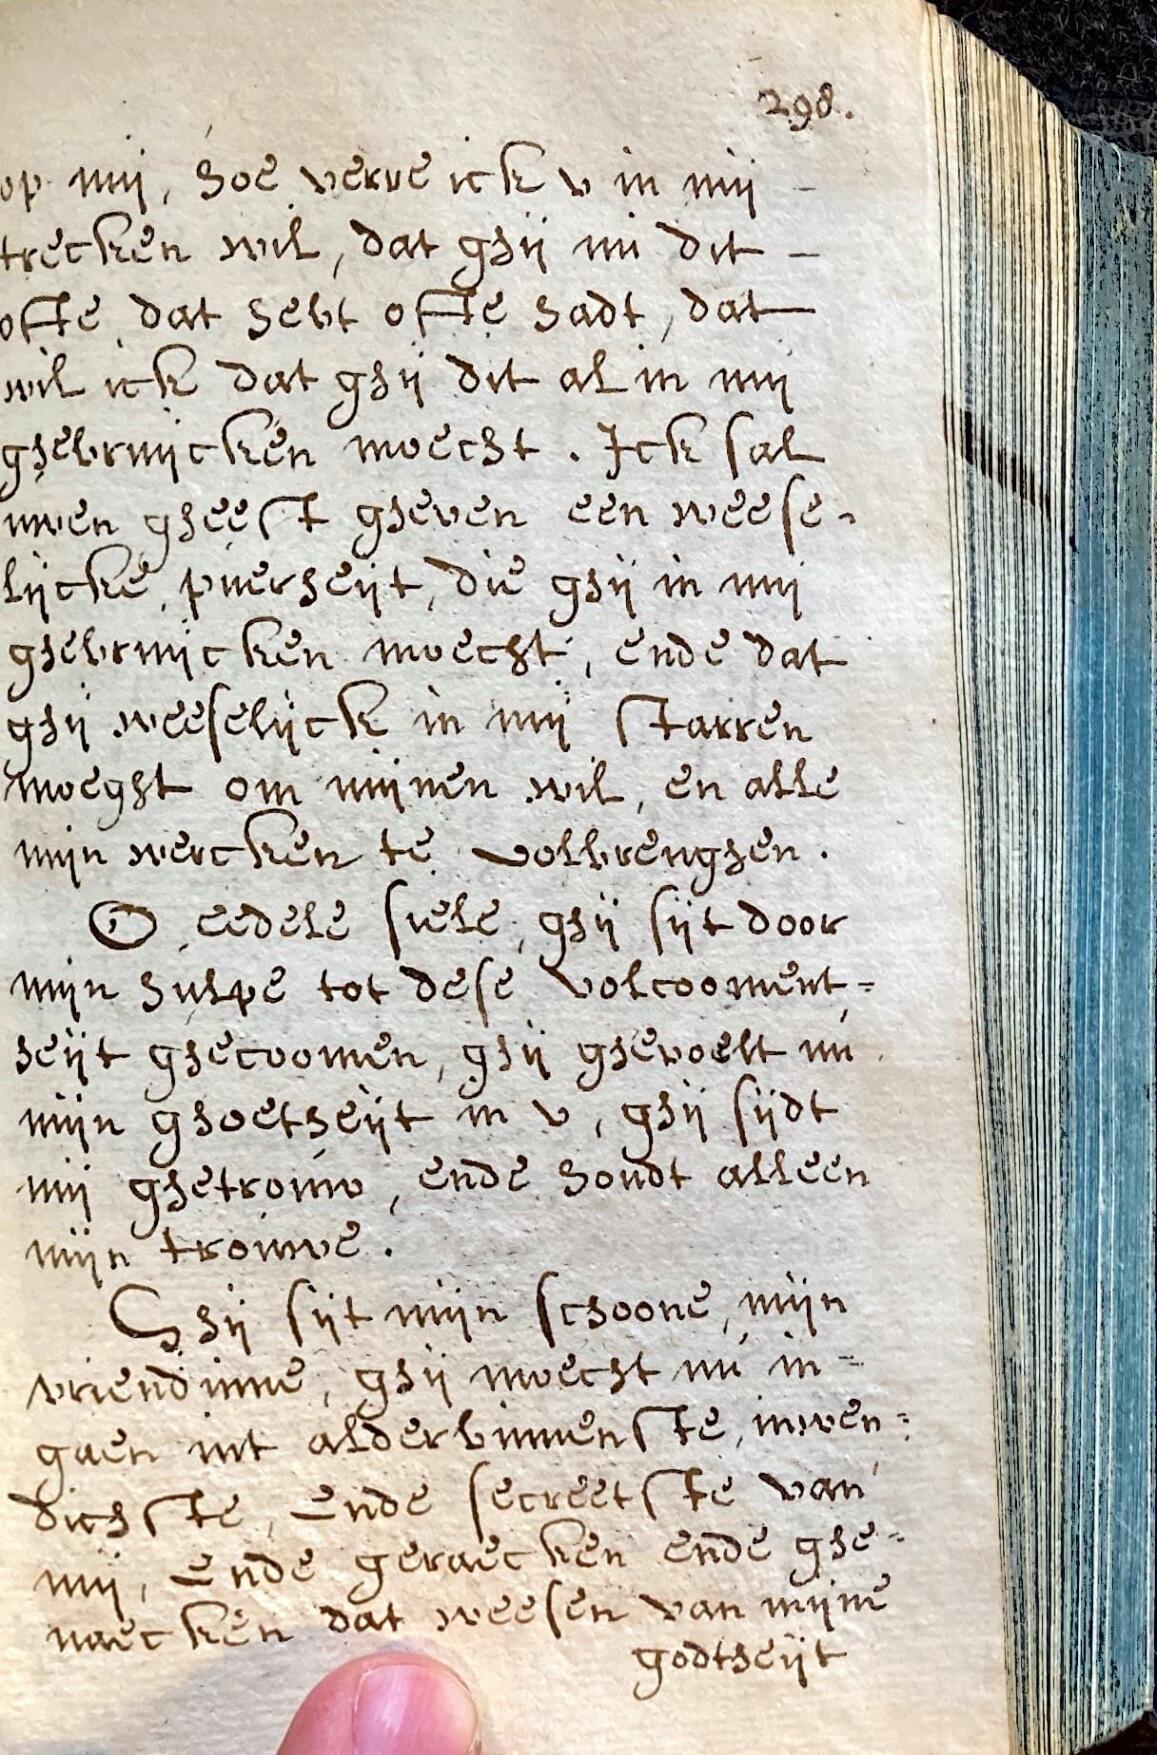 298.
op mij, hoe verre ick v in mij -
trecken wil, dat ghij nu dit -
ofte dat hebt ofte hadt, dat
wil ick dat ghij dit al in mij
ghebruijcken moecht. Ick sal
uwen gheest gheven een weese-
lijcke, puerheijt, die ghij in mij
ghebruijcken moecht, ende dat
ghij weeselijck in mij starren
moeght om mijnen wil, en alle
mijn wercken te volbrenghen.
O eedele siele, ghij sijt door
mijn hulpe tot dese volcooment=
heijt ghecoomen, ghij ghevoelt nu
mijn ghoetheijt in v, ghij sijdt
mij ghetrouw, ende houdt alleen
mijn trouwe.
Ghij sijt mijn schoone, mijn
vriendinne, ghij moecht nu in=
gaen int alderbinnenste, inwen=
dichste, ende secreetste van
mij, ende geraecken ende ghe=
naecken dat weesen van mijne
godtheijt